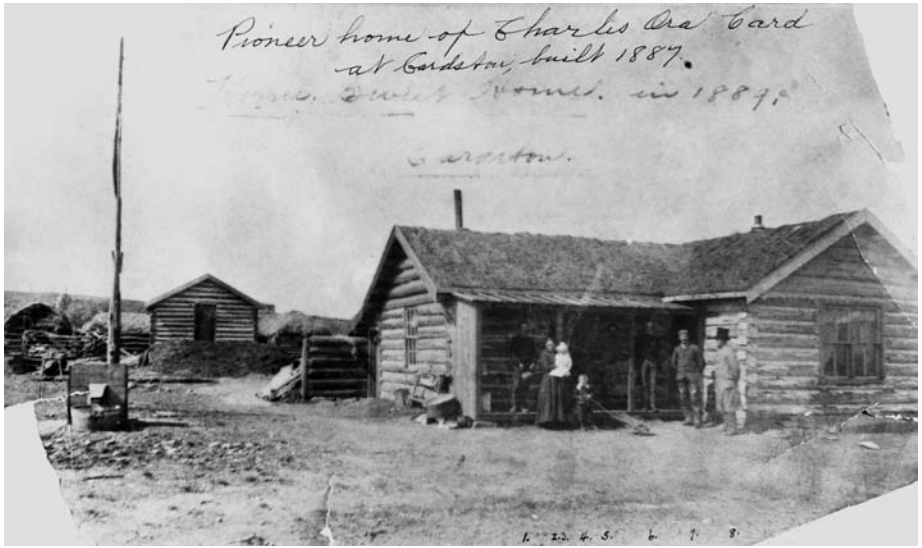 Pioneer home of Charles Ora Card
at Cardston, built 1887.
Home, Sweet Home. in 1889.
Cardston.
1. 2.3. 4. 5. 6. 7. 8.